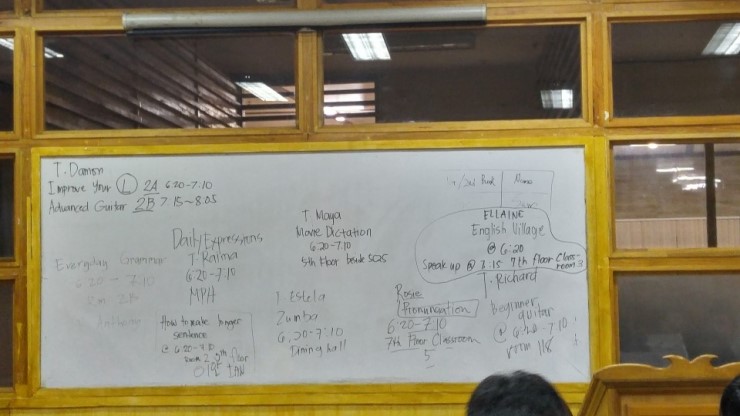 T. Damon
Improve Your L 2A 6:20-7:10
Advanced Guitar 2B 7:15~8:05
Everyday Grammar
6:20 - 7:10
Rm: 2B
Anthony
Daily Expressions
T. Ralina
6:20-7:10
MPH
How to make longer
sentence
@ 6:20-7:10
Room 2 5th floor
T. Maya
Movie Dictation
6:20-7:10
5th Floor
T. Estela
Zumba
6:20-7:10
Dining hall
Memo
ELLAINE
English Village
@ 6:20
Speak up @ 7th floor Class-
room 3
Rosie
Pronunciation
6:20-7:10
7th Floor Classroom
5
T. Richard
Beginner
guitar
@ 6:20-7:10
room 118